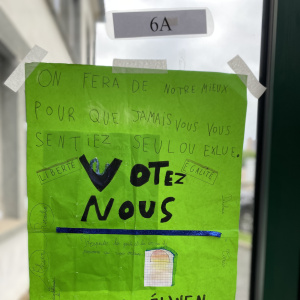 6A
ON FERA DE NOTRE MIEUX
POUR QUE JAMAIS VOUS VOUS
SENTIEZ SEUL OU EXLUE.
LIBERTÉ VOTEZ ÉGALITÉ
NOUS